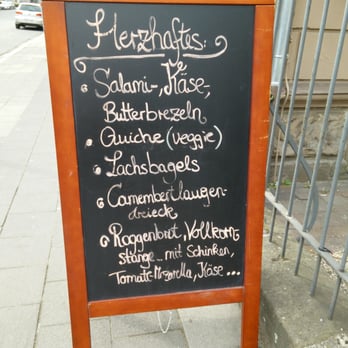 Herzhaftes:
Salami-, Käse-,
Butterbrezeln
Quiche (veggie)
Lachsbagels
Camembertlaugen-
dreieck
Roggenbrot, Vollkorn-
stange... mit Schinken,
Tomate-Mozarella, Käse...